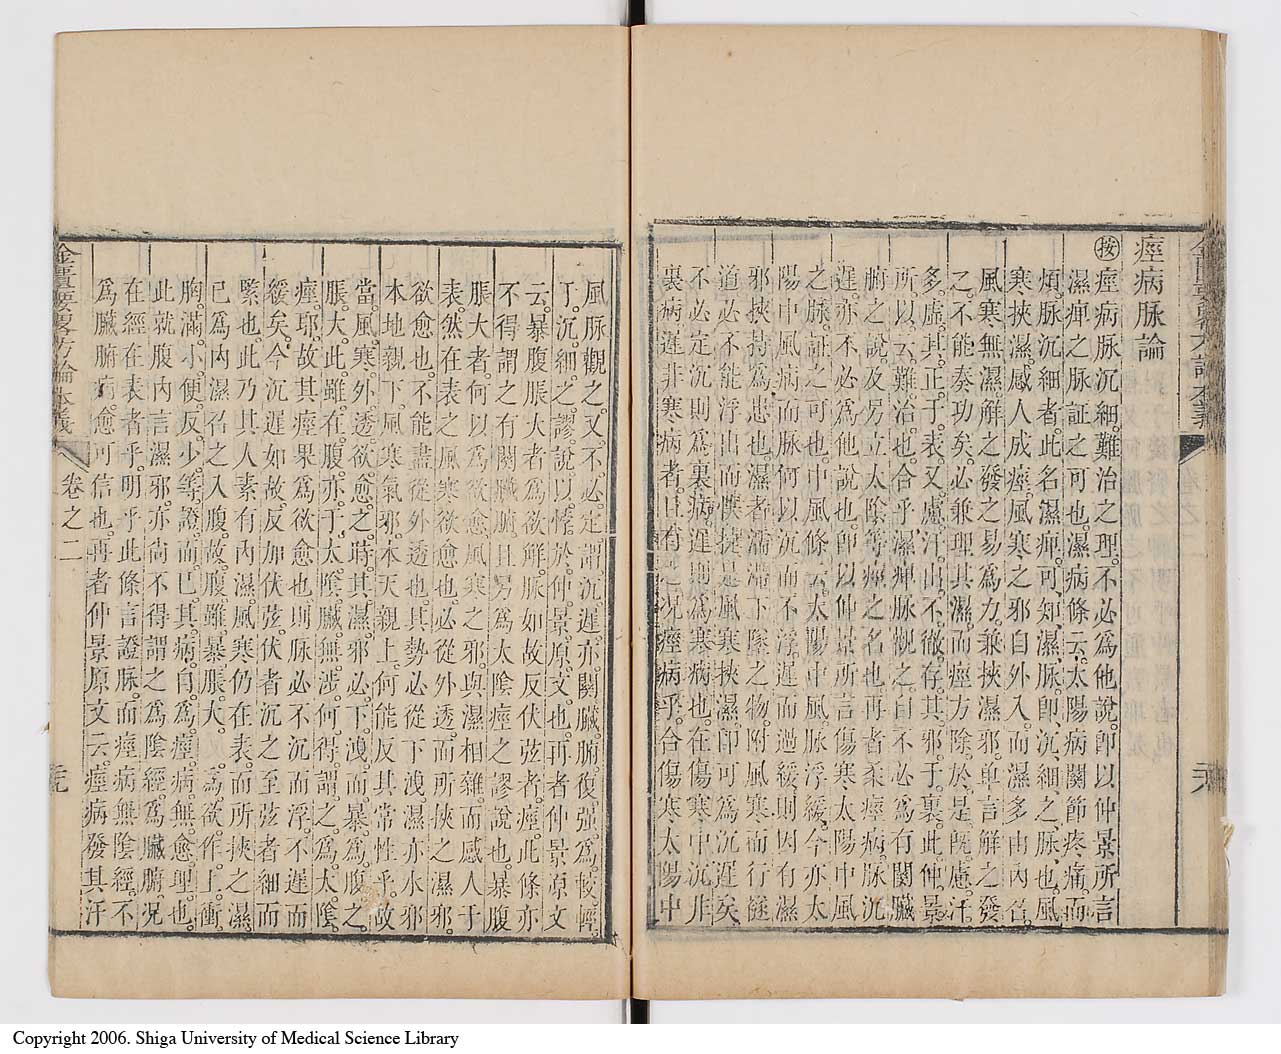 痙病脉論
按痙病脉沉細。難治之理。不必為他說。卽以仲景所言
濕痺之脉証之可也。濕病條云。太陽病關節疼痛而
煩。脉沉細者。此名濕痺。可知濕脉。卽沉細之脉也。風
寒挾濕。感人成痙。風寒之邪自外入。而濕多由內召。
風寒無濕。解之發之易為力。兼挾濕邪。单言解之發
之。不能奏功矣。必兼理其濕。而痙方除。於是既慮汗
多。虛其正于表。又慮汗出不徹。存其邪于裏。此仲景
所以云難治也。合乎濕痺脉觀之。自不必為有關臟
腑之說。及另立太陰等痙之名也。再者柔痙病。脉沉
遲。亦不必為他說也。卽以仲景所言傷寒太陽中風
之脉。証之可也。中風條云。太陽中風脉浮緩。今亦太
陽中風病而脉何以沉而不浮。遲而過緩。則因有濕
邪挾持為患也。濕者濡滯下墜之物。附風寒而行隧
道。必不能浮出而僕㨗。是風寒挾濕。卽可為沉遲矣。
不必定沉則為裏病。遲則為寒病也。在傷寒中沉非
裏病。遲非寒病者。且有之。况痙病乎。合傷寒太陽中
卷之二
風脉觀之。又不必定謂沉遲亦關臟腑。復强為較輕
于沉細之謬說。以悖於仲景原文也。再者仲景原文
云。暴腹脹大者。為欲解。脉如故。反伏弦者。痙。此條亦
不得謂之有關臟腑。且另為太陰痙之謬說也。暴腹
脹大者。何以為欲愈。風寒之邪。與濕相雜。而感人于
表。然在表之風寒欲愈也。必從外透。而所挾之濕邪
欲愈也。不能盡從外透也。其勢必從下洩。濕亦水邪
本地親下。風寒氣邪。本天親上。何能反其常性乎。故
當風寒外透欲愈之時。其濕邪必下洩。而暴為腹之
脹大。此雖在腹。亦于太陰臟無涉。何得謂之為太陰
痙耶。故其痙果為欲愈也。則脉必不沉而浮。不遲而
緩矣。今沉遲如故。反加伏弦。伏者沉之至。弦者細而
緊也。此乃其人素有內濕。風寒仍在表。而所挾之濕。
已為內濕召之入腹。故腹雖暴脹大。為欲作上衝。
胸滿。小便反少等證。而已其病自為痙病無愈理也。
此就腹內言濕邪。亦尚不得謂之為陰經。為臟腑。况
在經在表者乎。明乎此條言證脉。而痙病無陰經。不
為臟腑病。愈可信也。再者仲景原文云。痙病發其汗
金匱要畧方論本義
卷之二
Copyright 2006. Shiga University of Medical Science Library